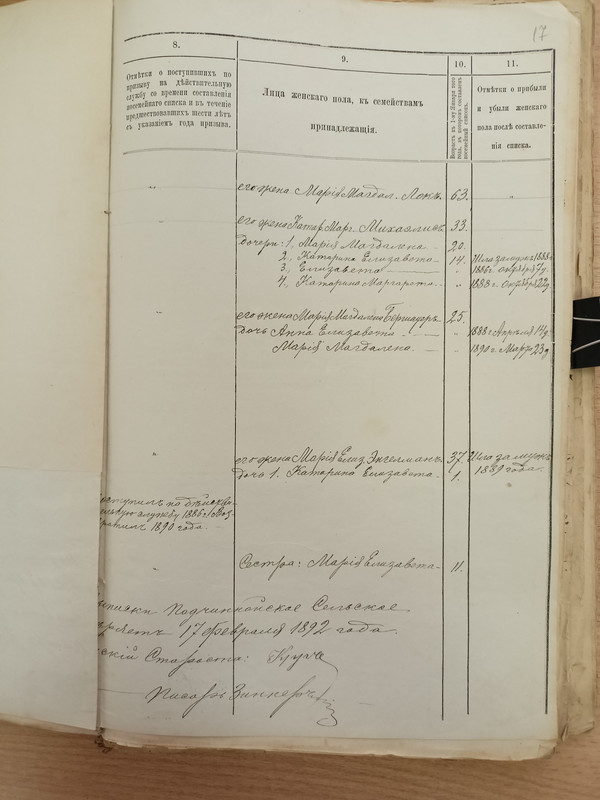 17
8.
9.
10.
11.
Отмѣтки о поступившихъ по
призыву на дѣйствительную
службу со времени составленія
посемейнаго списка и къ теченіе
предшествовавшихъ шести лѣтъ
съ указаніемъ года призыва.
Лица женскаго пола, къ семействамъ
принадлежащія.
Возрастъ къ 1-му Января того
года, въ которомъ составленъ
посемейный списокъ.
Отмѣтки о прибыли
и убыли женскаго
пола послѣ составле-
нія списка.
его жена Марія Магдал. Локъ. 63.
его жена Катар. Марг. Михаэлисъ. 33.
дочери: 1. Марія Магдалена 20.
2. Катарина Елизавета 14. Шла замужъ 1888 г.
3. Елизавета " 1886 г. октября 7 д.
4. Катарина Маргарета " 1888 г. октября 22 д.
его жена Марія Магдалина 25.
дочь Анна Елизавета " 1888 г. Апрѣля 14 д.
Марія Магдалена. " 1890 г. Марта 23 д.
его жена Марія Елиз. Энгелманъ. 37. Шла замужъ
дочь 1. Катарина Елизавета 1. 1889 года.
оступилъ на дѣйстви-
ельную службу 1886 г. Воз-
ратилъ 1890 года.
Сестра: Марія Елизавета 11.
ыписки Подчинное Сельское
17 февраля 1892 года.
скій Староста:
Писарь